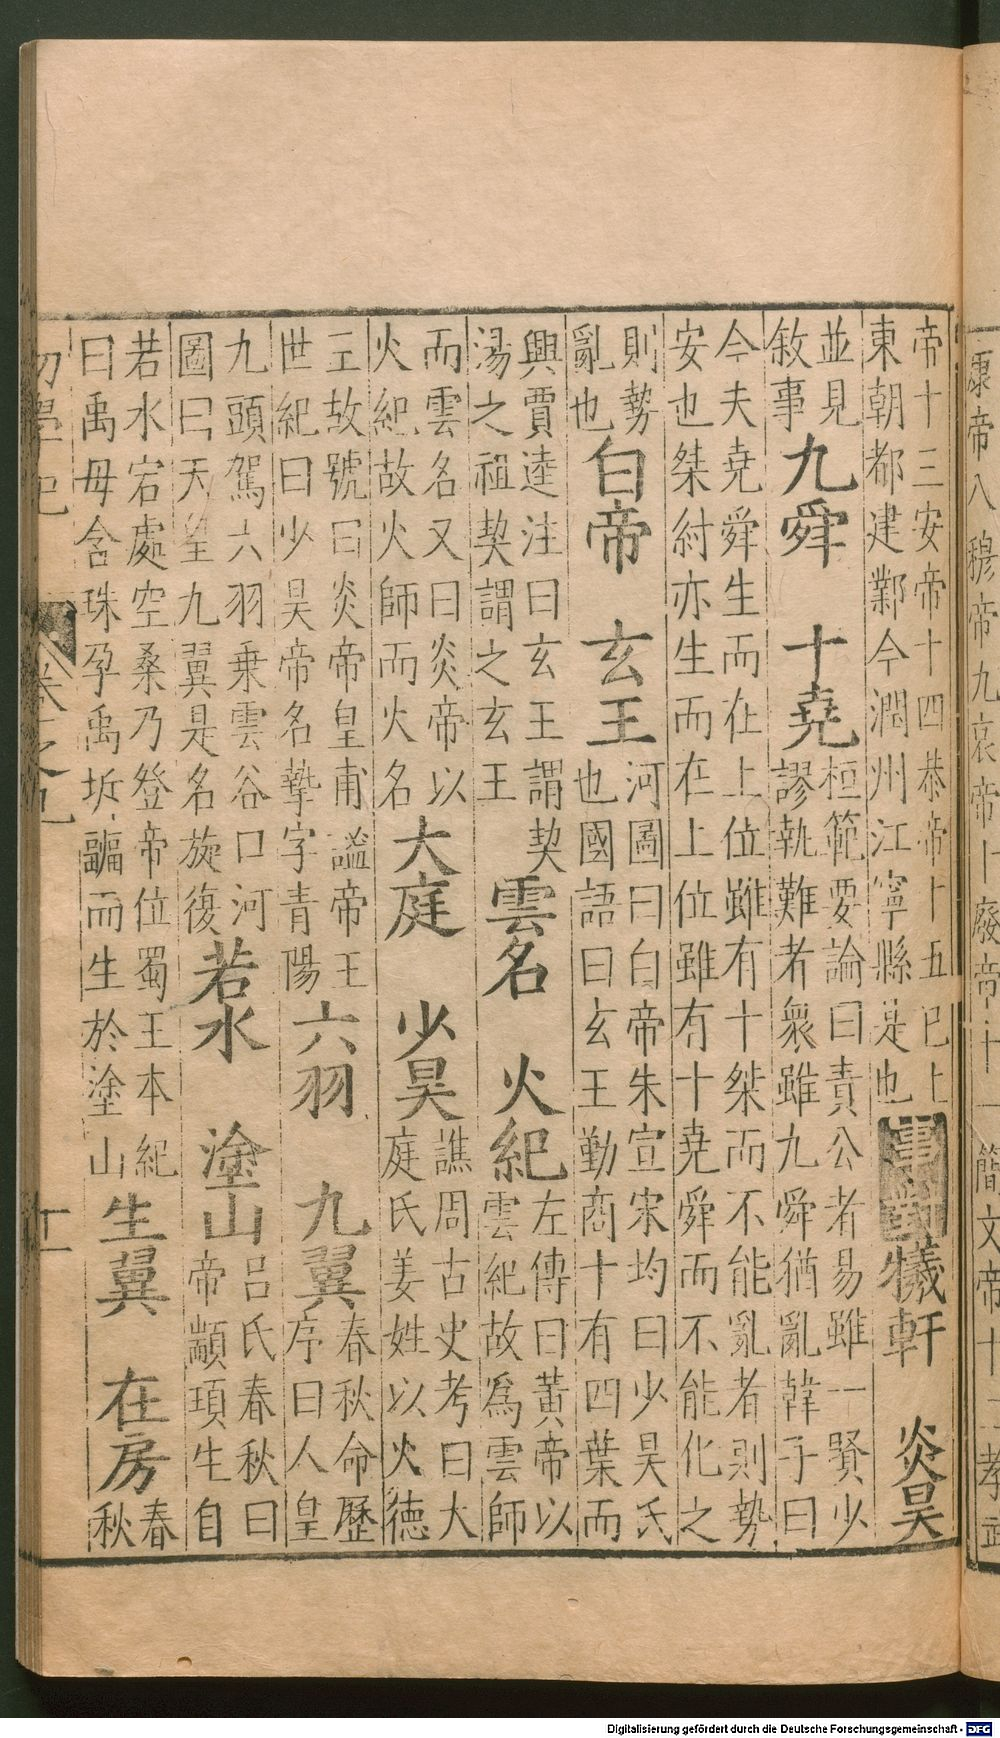 康帝八穆帝九哀帝十廢帝十一簡文帝十二孝武
帝十三安帝十四恭帝十五已上
東朝都建鄴今潤州江寧縣是也
事對 犧軒 炎昊
並見
敘事
九舜 十堯
桓範要論曰責公者易雖一賢少
謬執難者衆雖九舜猶亂韓子曰
今夫堯舜生而在上位雖有十桀而不能亂者則勢
安也桀紂亦生而在上位雖有十堯舜而不能化之
則勢
亂也
白帝 玄王
河圖曰白帝朱宣宋均曰少昊氏
也國語曰玄王勤商十有四葉而
興賈逵注曰玄王謂契
湯之祖契謂之玄王
雲名 火紀
左傳曰黃帝以
雲紀故爲雲師
而雲名又曰炎帝以
火紀故火師而火名
大庭 少昊
譙周古史考曰大
庭氏姜姓以火德
王故號曰炎帝皇甫謐帝王
世紀曰少昊帝名摯字青陽
六羽 九翼
春秋命歷
序曰人皇
九頭駕六羽乗雲谷口河
圖曰天皇九翼是名旋復
若水 塗山
呂氏春秋曰
帝顓頊生自
若水宕處空桑乃登帝位蜀王本紀
曰禹母含珠孕禹坼疈而生於塗山
生翼 在房
春
秋
初學記 卷之九 十一
Digitalisierung gefördert durch die Deutsche Forschungsgemeinschaft - DFG